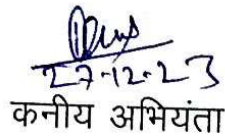 27-12-23
कनीय अभियंता